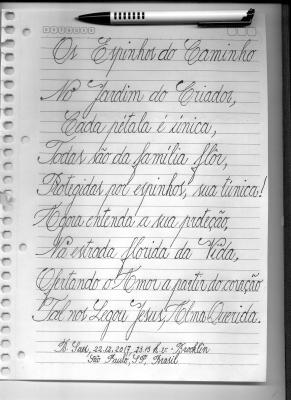 Os Espinhos do Caminho
No Jardim do Criador,
Cada pétala é única,
Todas são da família flôr,
Protegidas por espinhos, sua túnica!
Agora entenda a sua proteção,
Na estrada florida da Vida,
Ofertando o Amor a partir do coração
Tal nos Legou Jesus, Alma Querida.
22.12.2017, 23.13 h.v - Brooklin
São Paulo, S.P, Brasil